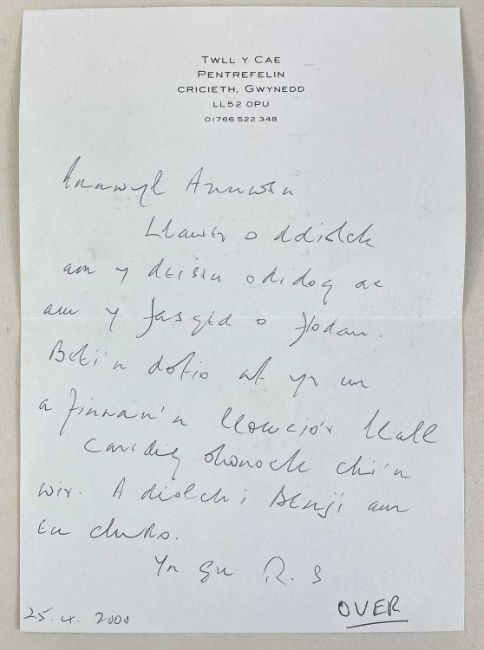 TWLL Y CAE
PENTREFELIN
CRICIETH, GWYNEDD
LL52 0PU
01766 522 348
Annwyl
Llawer o ddiolch
am y deisen odidog ac
am y fasged o flodau.
Beti'n dotio at yr un
a finnau'n llowcio'r llall
Caredig ohonoch chi'n
wir. A diolch i Benji am
eu cludo.
Yn gu R. S
25. 4. 2000
OVER